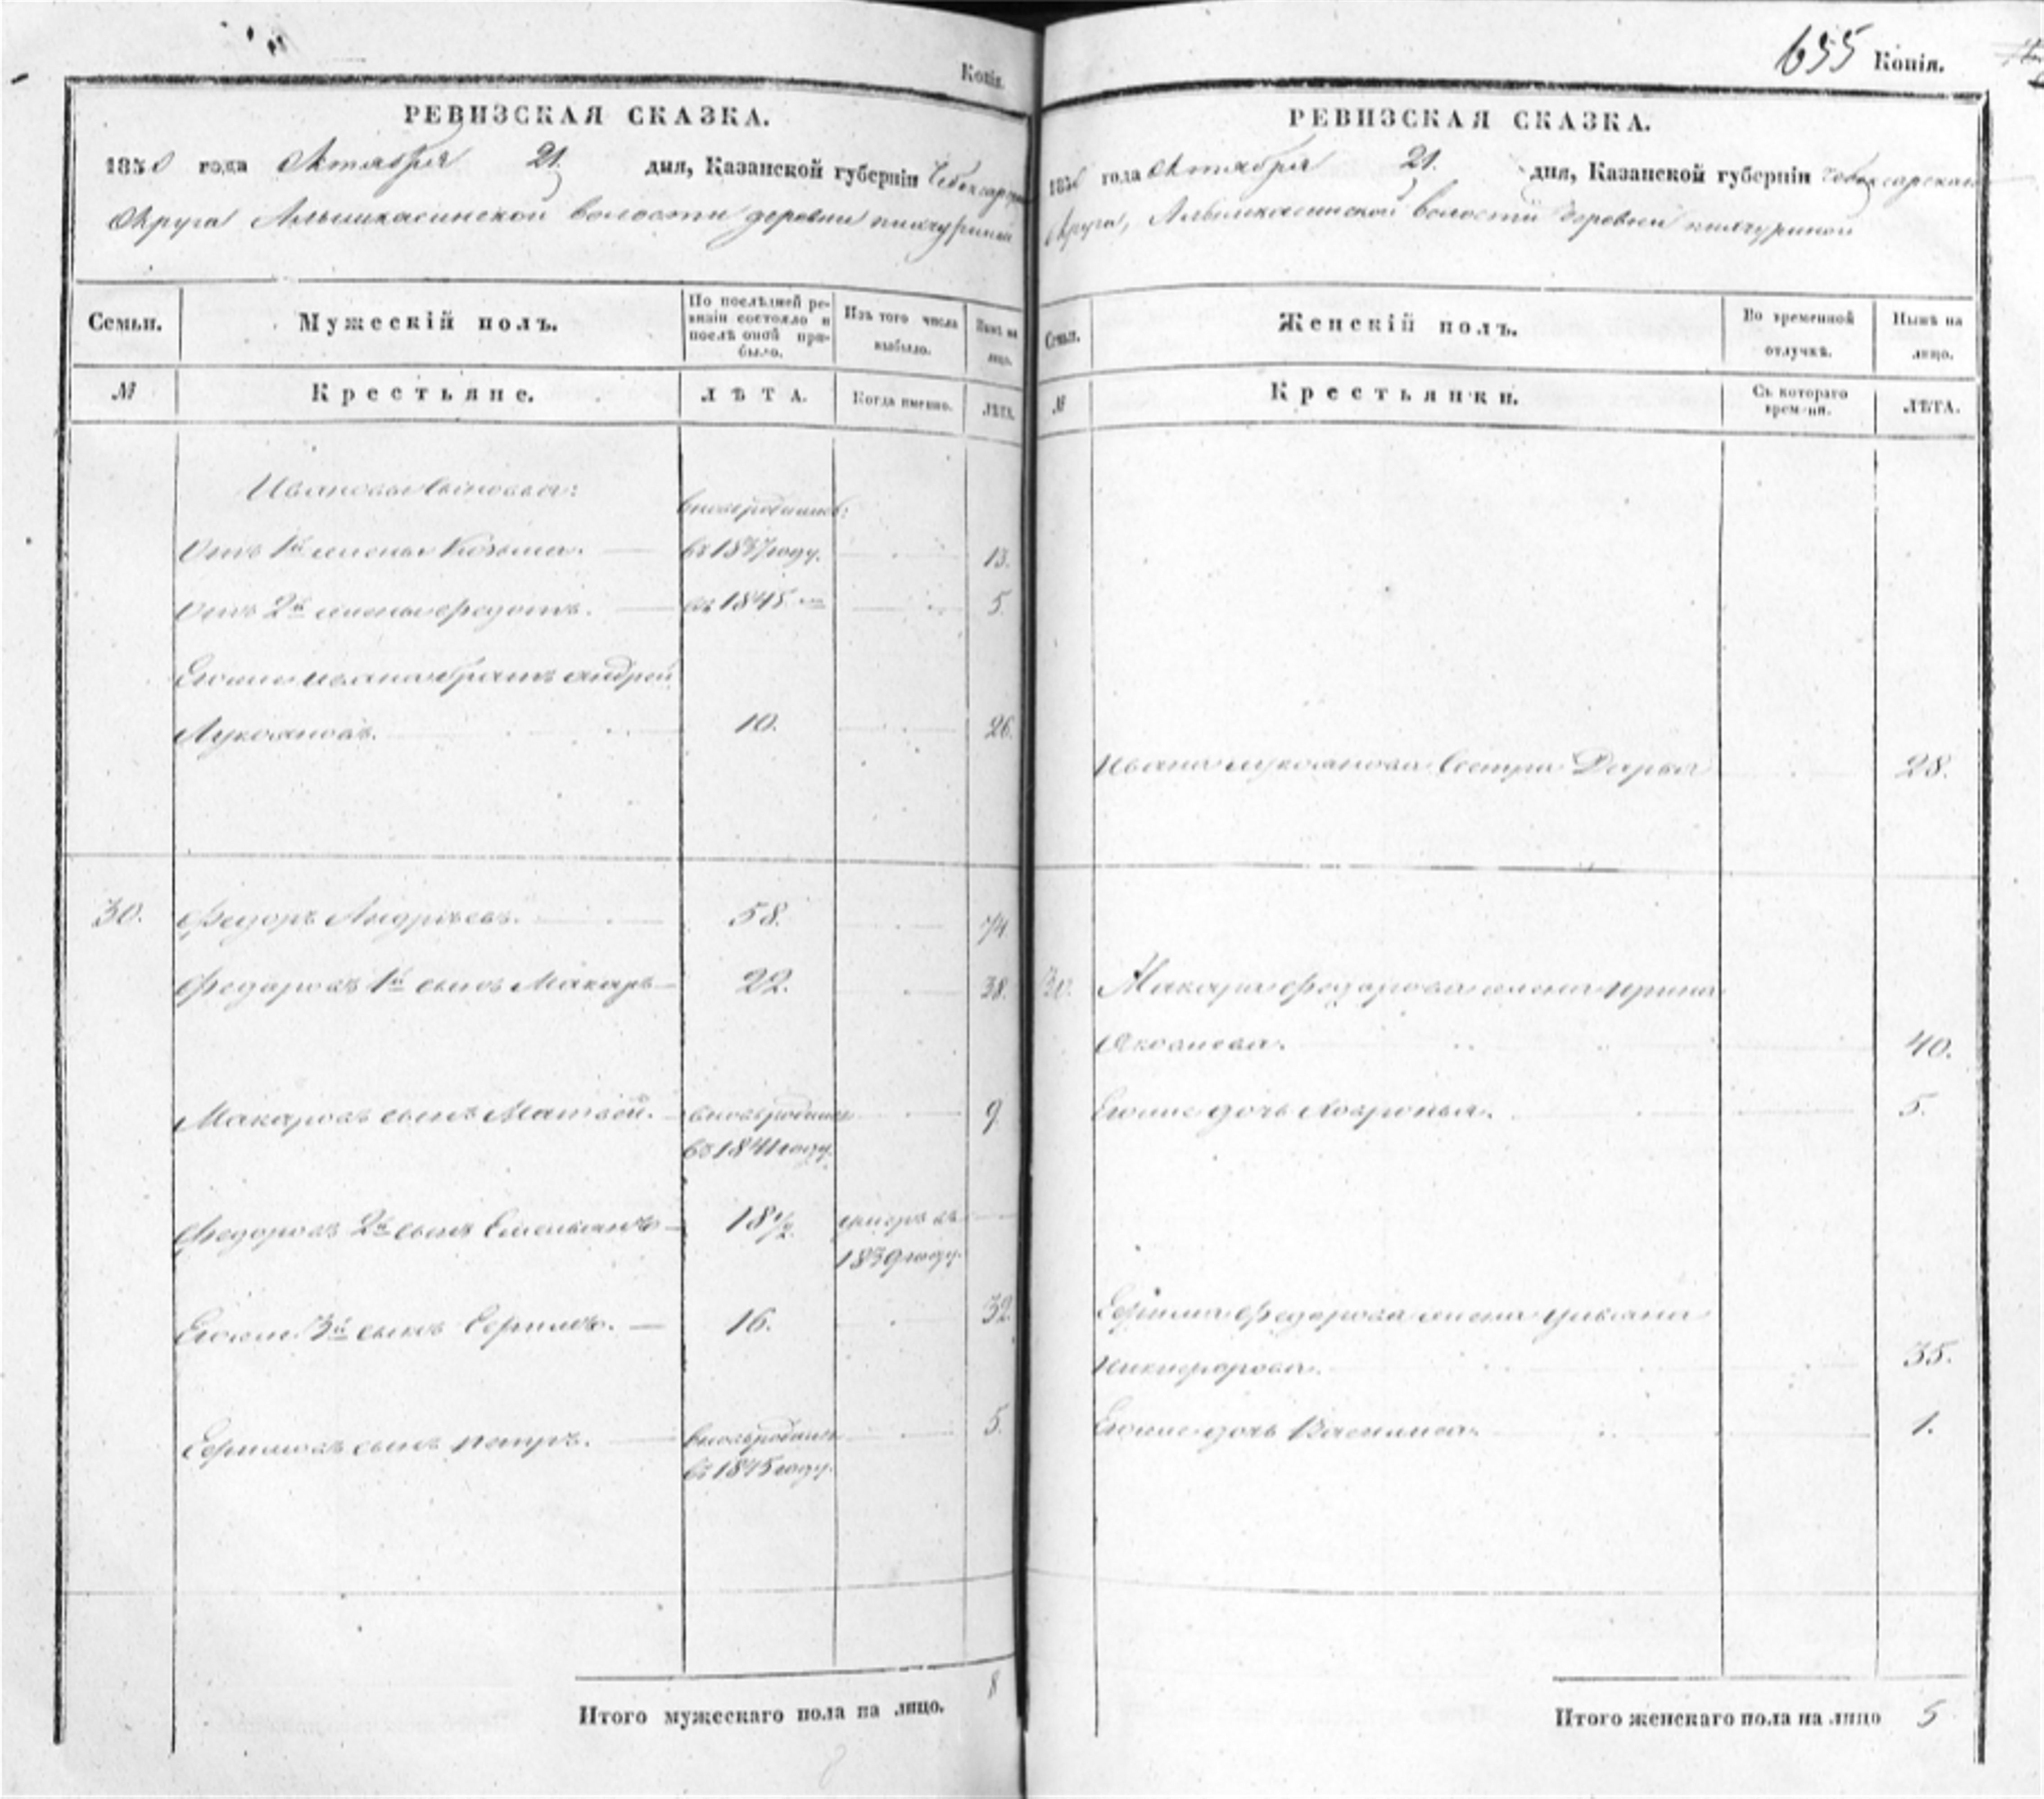 Копія.
РЕВИЗСКАЯ СКАЗКА.
1850 года Октября 21. дня, Казанской губерніи Чебоксарскаго
Округа Алымкасинской волости деревни
Семьи.
Мужескій полъ.
По послѣдней ре-
визіи состояло и
послѣ оной при-
было.
Изъ того числа
выбыло.
Нынѣ на
лицо.
№
Крестьяне.
ЛѢТА.
Когда именно.
ЛѢТА.
Ивановы сыновья:
вновьродились:
Отъ 1й жены Козьма. въ 1837 году. 13.
Отъ 2й жены Федотъ. въ 1845. 5.
Егоже Ивана братъ Андрей
Лукояновъ. 10. 26.
30. Федоръ Андреевъ. 58. 74
Федоровъ 1й сынъ Макаръ 22. 38.
Макаровъ сынъ Матвей. вновьродился 9.
въ 1841 году.
Федоровъ 2й сынъ Емельянъ 18 1/2. умеръ въ
1839 году.
Егоже 3й сынъ Ефимъ. 16. 32.
Ефимовъ сынъ Петръ. вновьродился 5.
въ 1845 году.
Итого мужескаго пола на лицо. 8
655 Копія.
РЕВИЗСКАЯ СКАЗКА.
1850 года Октября 21. дня, Казанской губерніи Чебоксарскаго
Округа, Алымкасинской волости деревни
Семьи.
Женскій полъ.
Во временной
отлучкѣ.
Нынѣ на
лицо.
№
Крестьянки.
Съ котораго
времени.
ЛѢТА.
Ивана Лукоянова сестра Дарья 28.
30. Макара Федорова жена Ирина
Яковлева. 40.
Егоже дочь Ховронья. 5.
Ефима Федорова жена Ульяна
Никифорова. 35.
Егоже дочь Василиса. 1.
Итого женскаго пола на лицо 5